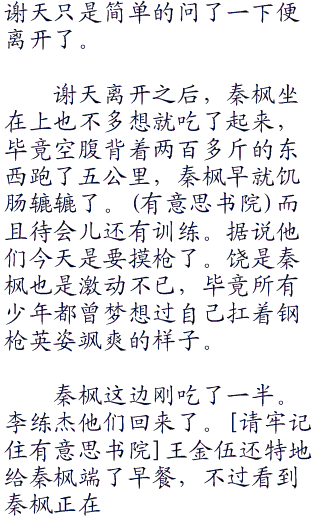 谢天只是简单的问了一下便
离开了。
谢天离开之后，秦枫坐
在上也不多想就吃了起来，
毕竟空腹背着两百多斤的东
西跑了五公里，秦枫早就饥
肠辘辘了。(有意思书院)而
且待会儿还有训练。据说他
们今天是要摸枪了。饶是秦
枫也是激动不已，毕竟所有
少年都曾梦想过自己扛着钢
枪英姿飒爽的样子。
秦枫这边刚吃了一半。
李练杰他们回来了。[请牢记
住有意思书院]王金伍还特地
给秦枫端了早餐，不过看到
秦枫正在